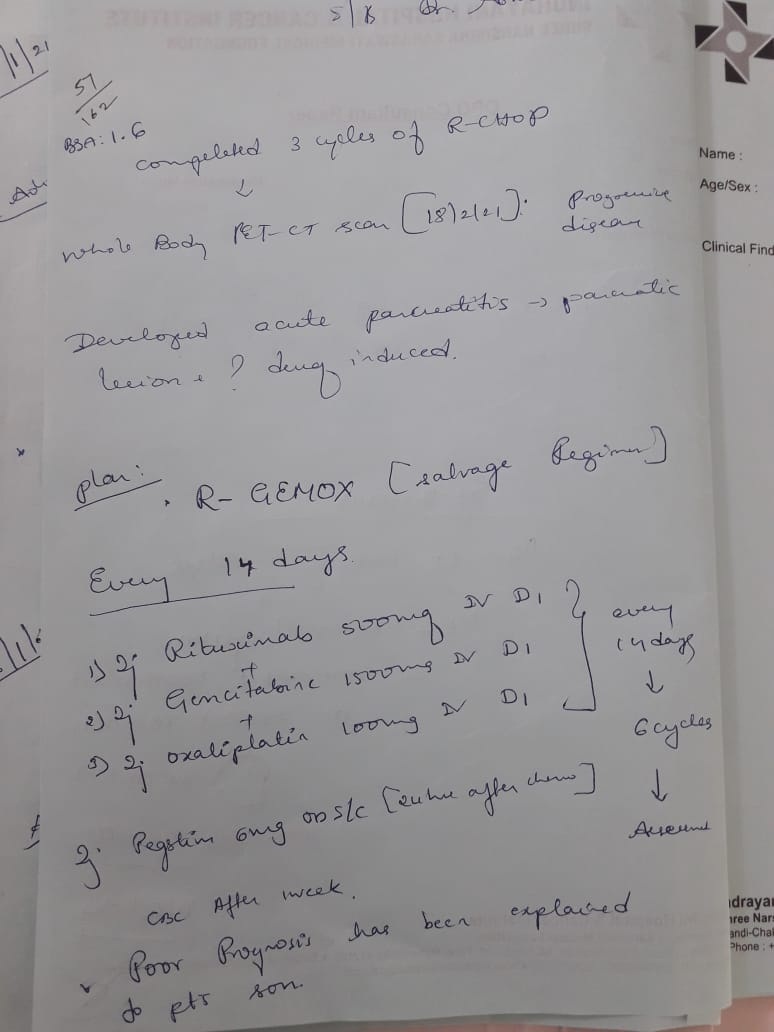 S/B Dr
1/21
57
162
BSA: 1.6
Compeleted 3 cycles of R-CHOP
↓
Whole Body PET-CT scan [18/2/21]: Progressive disease
Developed acute pancreatitis → pancreatic
lesion + ? drug induced.
Plan:
• R- GEMOX [salvage Regimen]
Every 14 days.
1) Inj Rituximab 500mg IV D1
+
2) Inj Gemcitabine 1500mg IV D1
+
3) Inj oxaliplatin 100mg IV D1
every
14 days
↓
6 cycles
↓
Inj Pegstim 6mg OD S/C [24hr after chemo]
CBC After 1 week.
Poor Prognosis has been explained
to pts son.
Adv
Name :
Age/Sex :
Clinical Find
ndrayan
hree Nar
andi-Chal
Phone : +